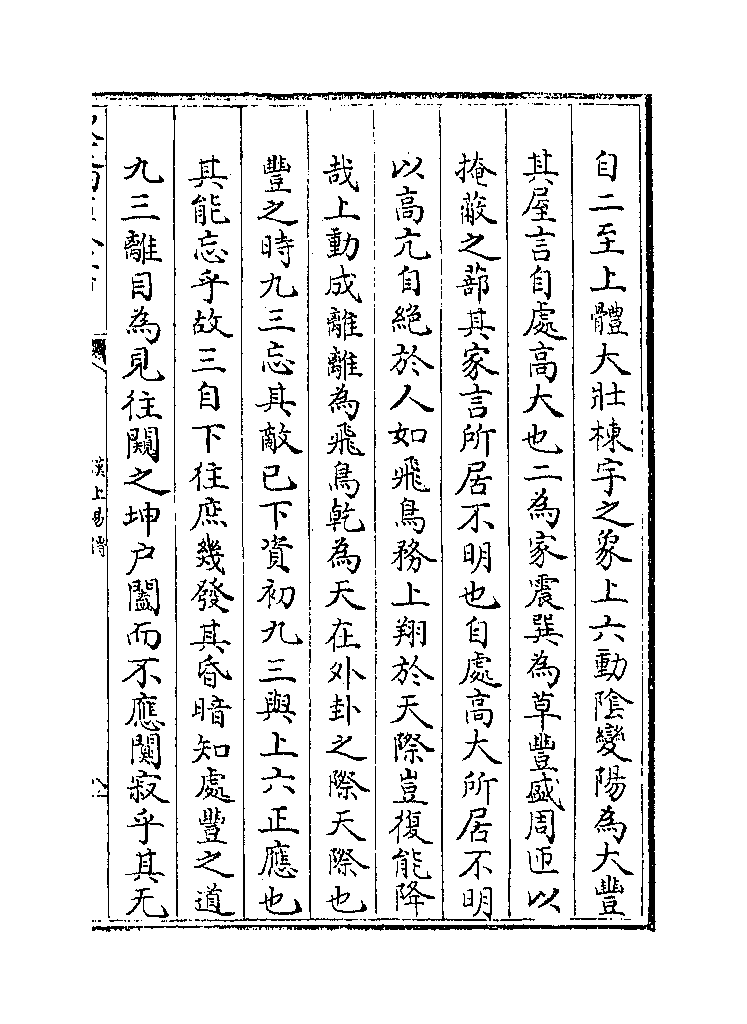 自二至上體大壯棟宇之象上六動陰變陽為大豐
其屋言自處高大也二為家震巽為草豐盛周匝以
掩蔽之蔀其家言所居不明也自處高大所居不明
以高亢自絶於人如飛鳥務上翔於天際豈復能降
哉上動成離離為飛鳥乾為天在外卦之際天際也
豐之時九三忘其敵已下資初九三與上六正應也
其能忘乎故三自下往庶幾發其昏暗知處豐之道
九三離目為見往闚之坤户闔而不應闃寂乎其无
漢上易傳